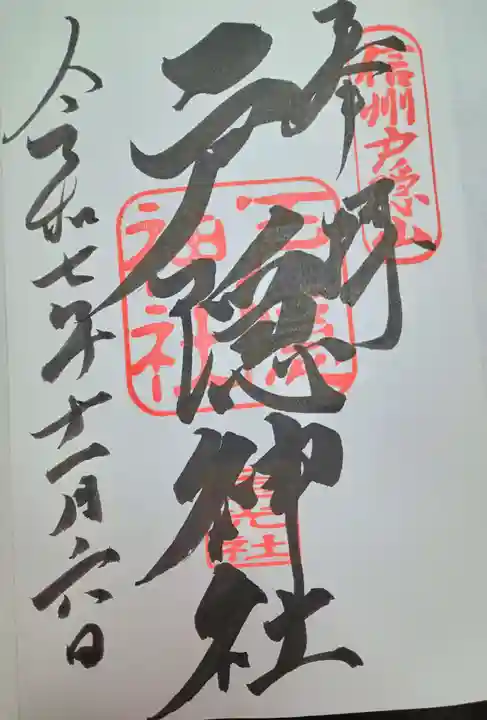 信州戸隠山
奉拝
戸隠神社
戸隠
神社
宝光社
令和七年十一月六日